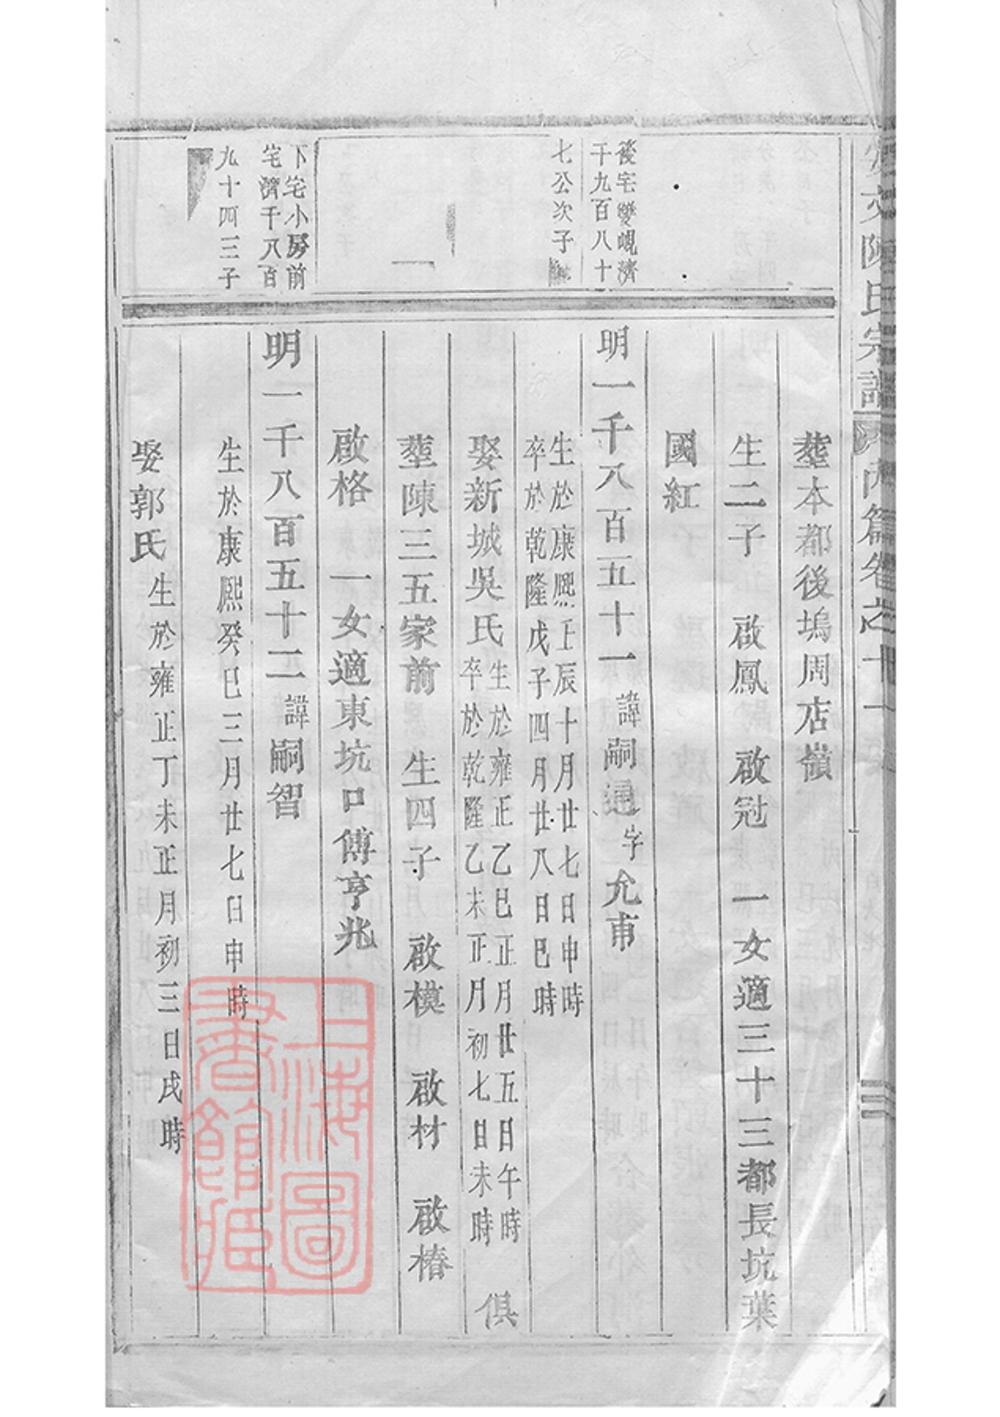 安文陳氏宗譜 內篇卷之十一
後宅雙峴濟
千九百八十
七公次子
下宅小房前
宅濟千八百
九十四三子
塟本都後塢周店嶺
生二子 啟鳳 啟冠 一女適三十三都長坑葉
國紅
明一千八百五十一諱嗣通字允甫
生於康熙壬辰十月廿七日申時
卒於乾隆戊子四月廿八日巳時
娶新城吳氏生於雍正乙巳正月廿五日午時
卒於乾隆乙未正月初七日未時 俱
塟陳三五家前 生四子 啟模 啟材 啟椿
啟格 一女適東坑口傅亨兆
明一千八百五十二諱嗣智
生於康熙癸巳三月廿七日申時
娶郭氏生於雍正丁未正月初三日戌時
上海圖
書館藏